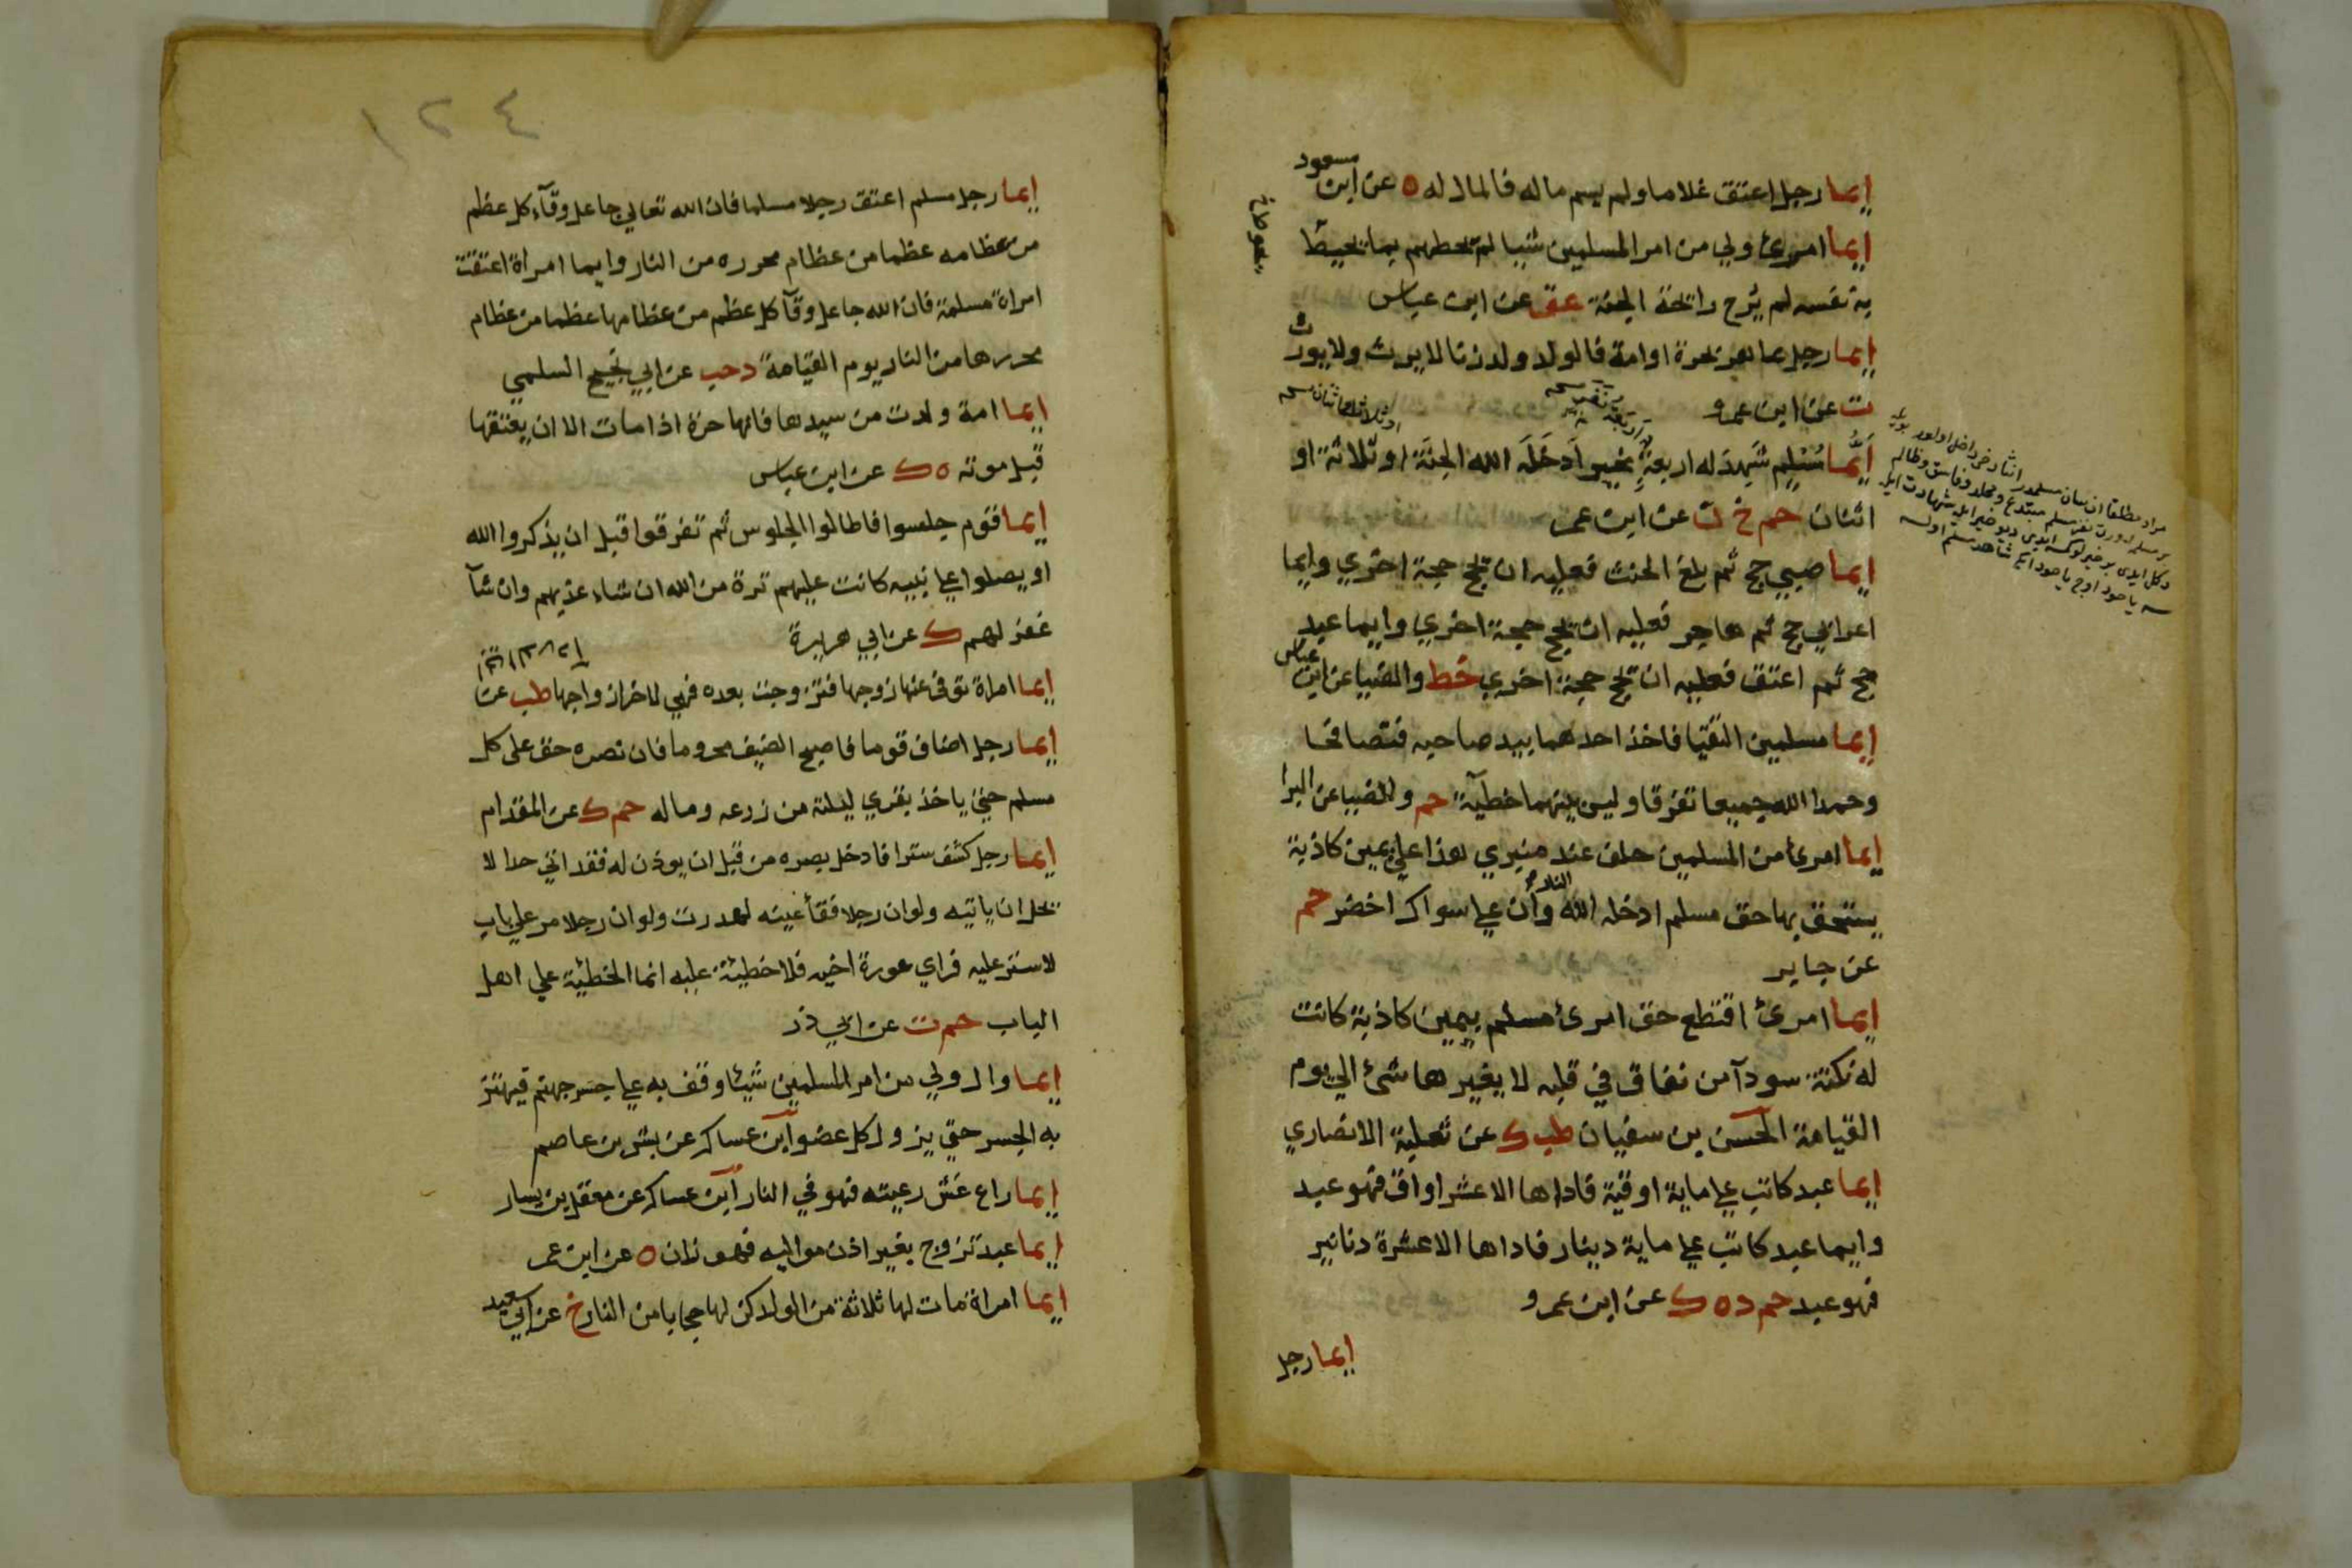 ايما رجل اعتق غلاما ولم يسم ماله فالمال له ه عن ابن مسعود
ايما امرئ ولي من امر المسلمين شيئا لم يحطهم بما يحيط
به نفسه لم يرح رائحة الجنة عق عن ابن عباس
ايما رجل عاهر بحرة او امة فالولد ولد زنا لا يرث ولا يورث
ت عن ابن عمرو
اَيُّمَا مُسْلِمٍ شَهِدَ له اربعةٌ بخيرٍ اَدخَلَه الله الجنَّة او ثلاثة او
اثنان حم خ ن عن ابن عمر
ايما صبي حج ثم بلغ الحنث فعليه ان يحج حجة اخري وايما
اعرابي حج ثم هاجر فعليه ان يحج حجة اخري وايما عبد
حج ثم اعتق فعليه ان يحج حجة اخري خط والضيا عن ابن عباس
ايما مسلمين التقيا فاخذ احدهما بيد صاحبه فتصافحا
وحمدا الله جميعا تفرقا وليس بينهما خطيئة حم والضيا عن البرا
ايما امرئ من المسلمين حلف عند منبري هذا علي يمين كاذبة
يستحق بها حق مسلم ادخله الله النار وان علي سواك اخضر حم
عن جابر
ايما امرئ اقتطع حق امرئ مسلم بيمين كاذبة كانت
له نكتة سودآ من نفاق في قلبه لا يغيرها شئ الي يوم
القيامة الحسن بن سفيان طب ك عن ثعلبة الانصاري
ايما عبد كاتب علي ماية اوقية فاداها الا عشر اواق فهو عبد
وايما عبد كاتب علي ماية دينار فاداها الا عشرة دنانير
فهو عبد حم د ه ك عن ابن عمرو
ايما رجل
١٢٤
ايما رجل مسلم اعتق رجلا مسلما فان الله تعالي جاعل وقآء كل عظم
من عظامه عظما من عظام محرره من النار وايما امراة اعتقت
امراة مسلمة فان الله جاعل وقآ كل عظم من عظامها عظما من عظام
محررها من النار يوم القيامة د حب عن ابي نجيح السلمي
ايما امة ولدت من سيدها فانها حرة اذا مات الا ان يعتقها
قبل موته ه ك عن ابن عباس
ايما قوم جلسوا فاطالوا الجلوس ثم تفرقوا قبل ان يذكروا الله
او يصلوا علي نبيه كانت عليهم ترة من الله ان شاء عذبهم وان شآ
غفر لهم ك عن ابي هريرة
ايما امراة توفي عنها زوجها فتزوجت بعده فهي لاخر ازواجها طب عن
ايما رجل اضاف قوما فاصبح الضيف محروما فان نصره حق على كل
مسلم حتي ياخذ بقري ليلته من زرعه وماله حم ك عن المقدام
ايما رجل كشف سترا فادخل بصره من قبل ان يوذن له فقد اتي حدا لا
يحل ان ياتيه ولو ان رجلا فقأ عينه لهدرت ولو ان رجلا مر علي باب
لا ستر عليه فراي عورة اخيه فلا خطيئة عليه انما الخطيئة علي اهل
الباب حم ت عن ابي ذر
ايما وال ولي من امر المسلمين شيئا وقف به علي جسر جهنم فيهتز
به الجسر حتي يزول كل عضو ابن عساكر عن بشر بن عاصم
ايما راع غش رعيته فهو في النار ابن عساكر عن معقل بن يسار
ايما عبد تزوج بغير اذن مواليه فهو زان ه عن ابن عمر
ايما امراة مات لها ثلاثة من الولد كن لها حجابا من النار خ عن ابي سعيد